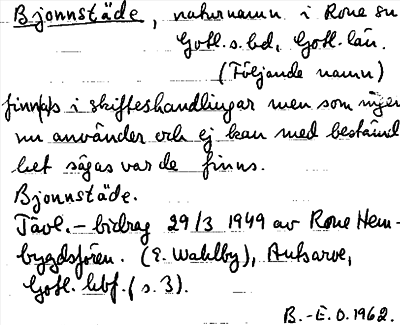 Bjonnstäde, naturnamn i Rone sn
Gotl. s. hd, Gotl. län.
(Följande namn)
finnas i skifteshandlingar men som ingen
nu använder och ej kan med bestämd
het sägas var de finns.
Bjonnstäde.
Tävl.-bidrag 29/3 1949 av Rone Hem-
bygdsfören. (E. Wahlby), Autsarve,
Gotl. hbf. (s. 3).
B.-E.O. 1962.